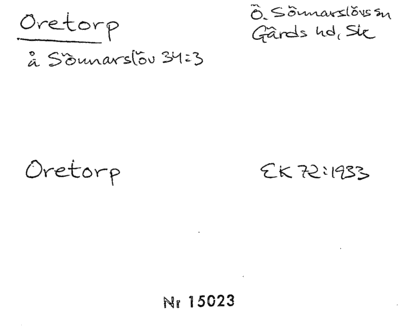 Oretorp
Ö. Sönnarslövs sn
Gärds hd, Sk
å Sönnarslöv 34:3
Oretorp
EK 72:1933
Nr 15023